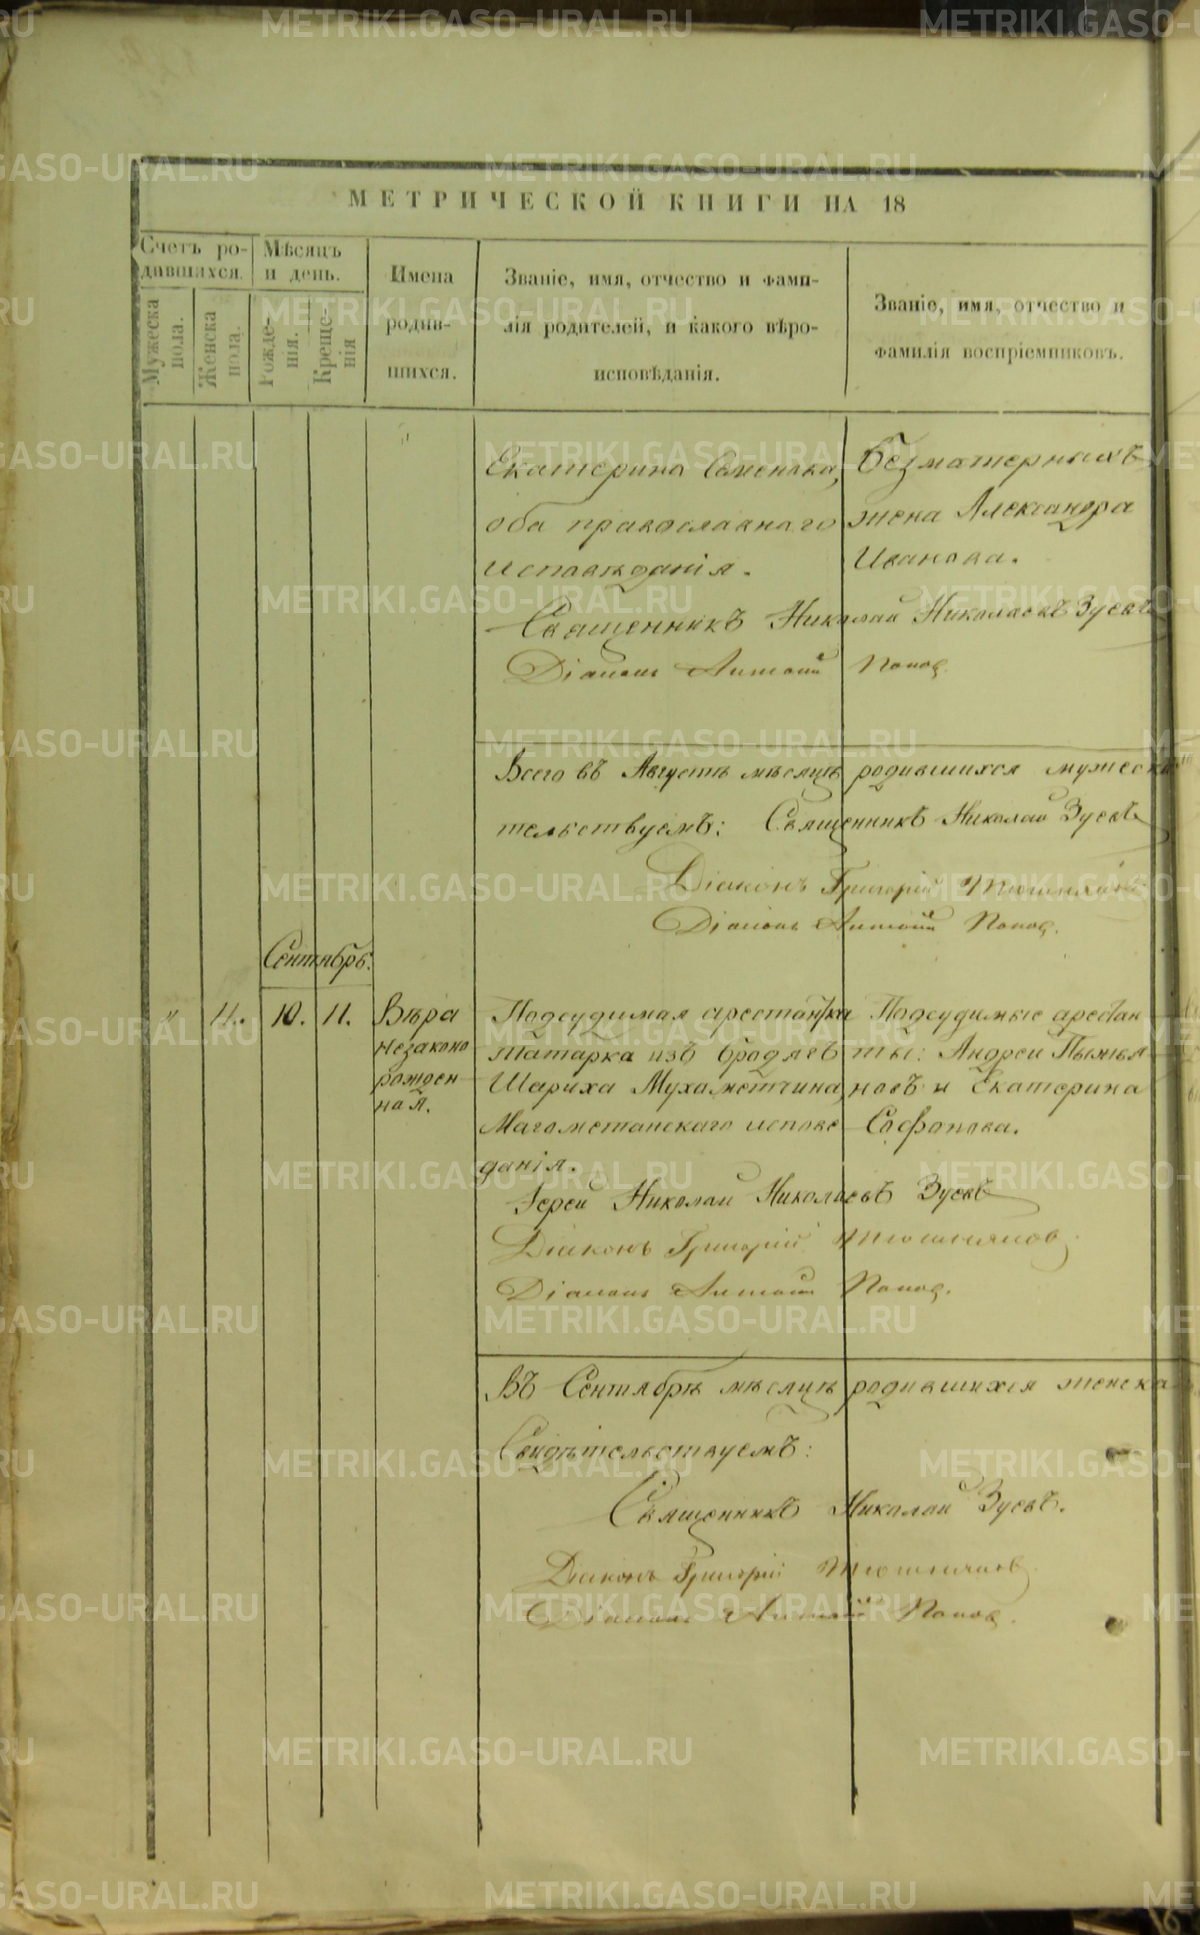 МЕТРИЧЕСКОЙ КНИГИ НА 18
Счетъ ро-
дившихся.
Мужеска
пола.
Женска
пола.
Мѣсяцъ
и день.
Рожде-
нія.
Креще-
нія
Имена
родив-
шихся.
Званіе, имя, отчество и фами-
лія родителей, и какого вѣро-
исповѣданія.
Званіе, имя, отчество и
фамилія воспріемниковъ.
Екатерина Семенова,
оба православнаго
исповѣданія.
Безматерныхъ
жена Александра
Иванова.
Священникъ Николай Николаевъ Зуевъ
Діаконъ Антоній Поповъ
Всего въ Августѣ мѣсяцѣ родившихся мужеска
тельствуемъ: Священникъ Николай Зуевъ
Діаконъ Григорій
Діаконъ Антоній Поповъ.
Сентябрь.
" 11. 10. 11.
Вѣра
незаконо
рожден-
ная.
Подсудимая арестантка
татарка изъ бродягъ
Шариха Мухаметчина,
Магометанскаго исповѣ
данія.
Подсудимые арестан
ты: Андрей Пьянья
новъ и Екатерина
Софонова.
Іерей Николай Николаевъ Зуевъ
Діаконъ Григорій
Діаконъ Антоній Поповъ.
Въ Сентябрѣ мѣсяцѣ родившихся женска
Свидѣтельствуемъ:
Священникъ Николай Зуевъ.
Діаконъ Григорій
Діаконъ Антоній Поповъ.
METRIKI.GASO-URAL.RU